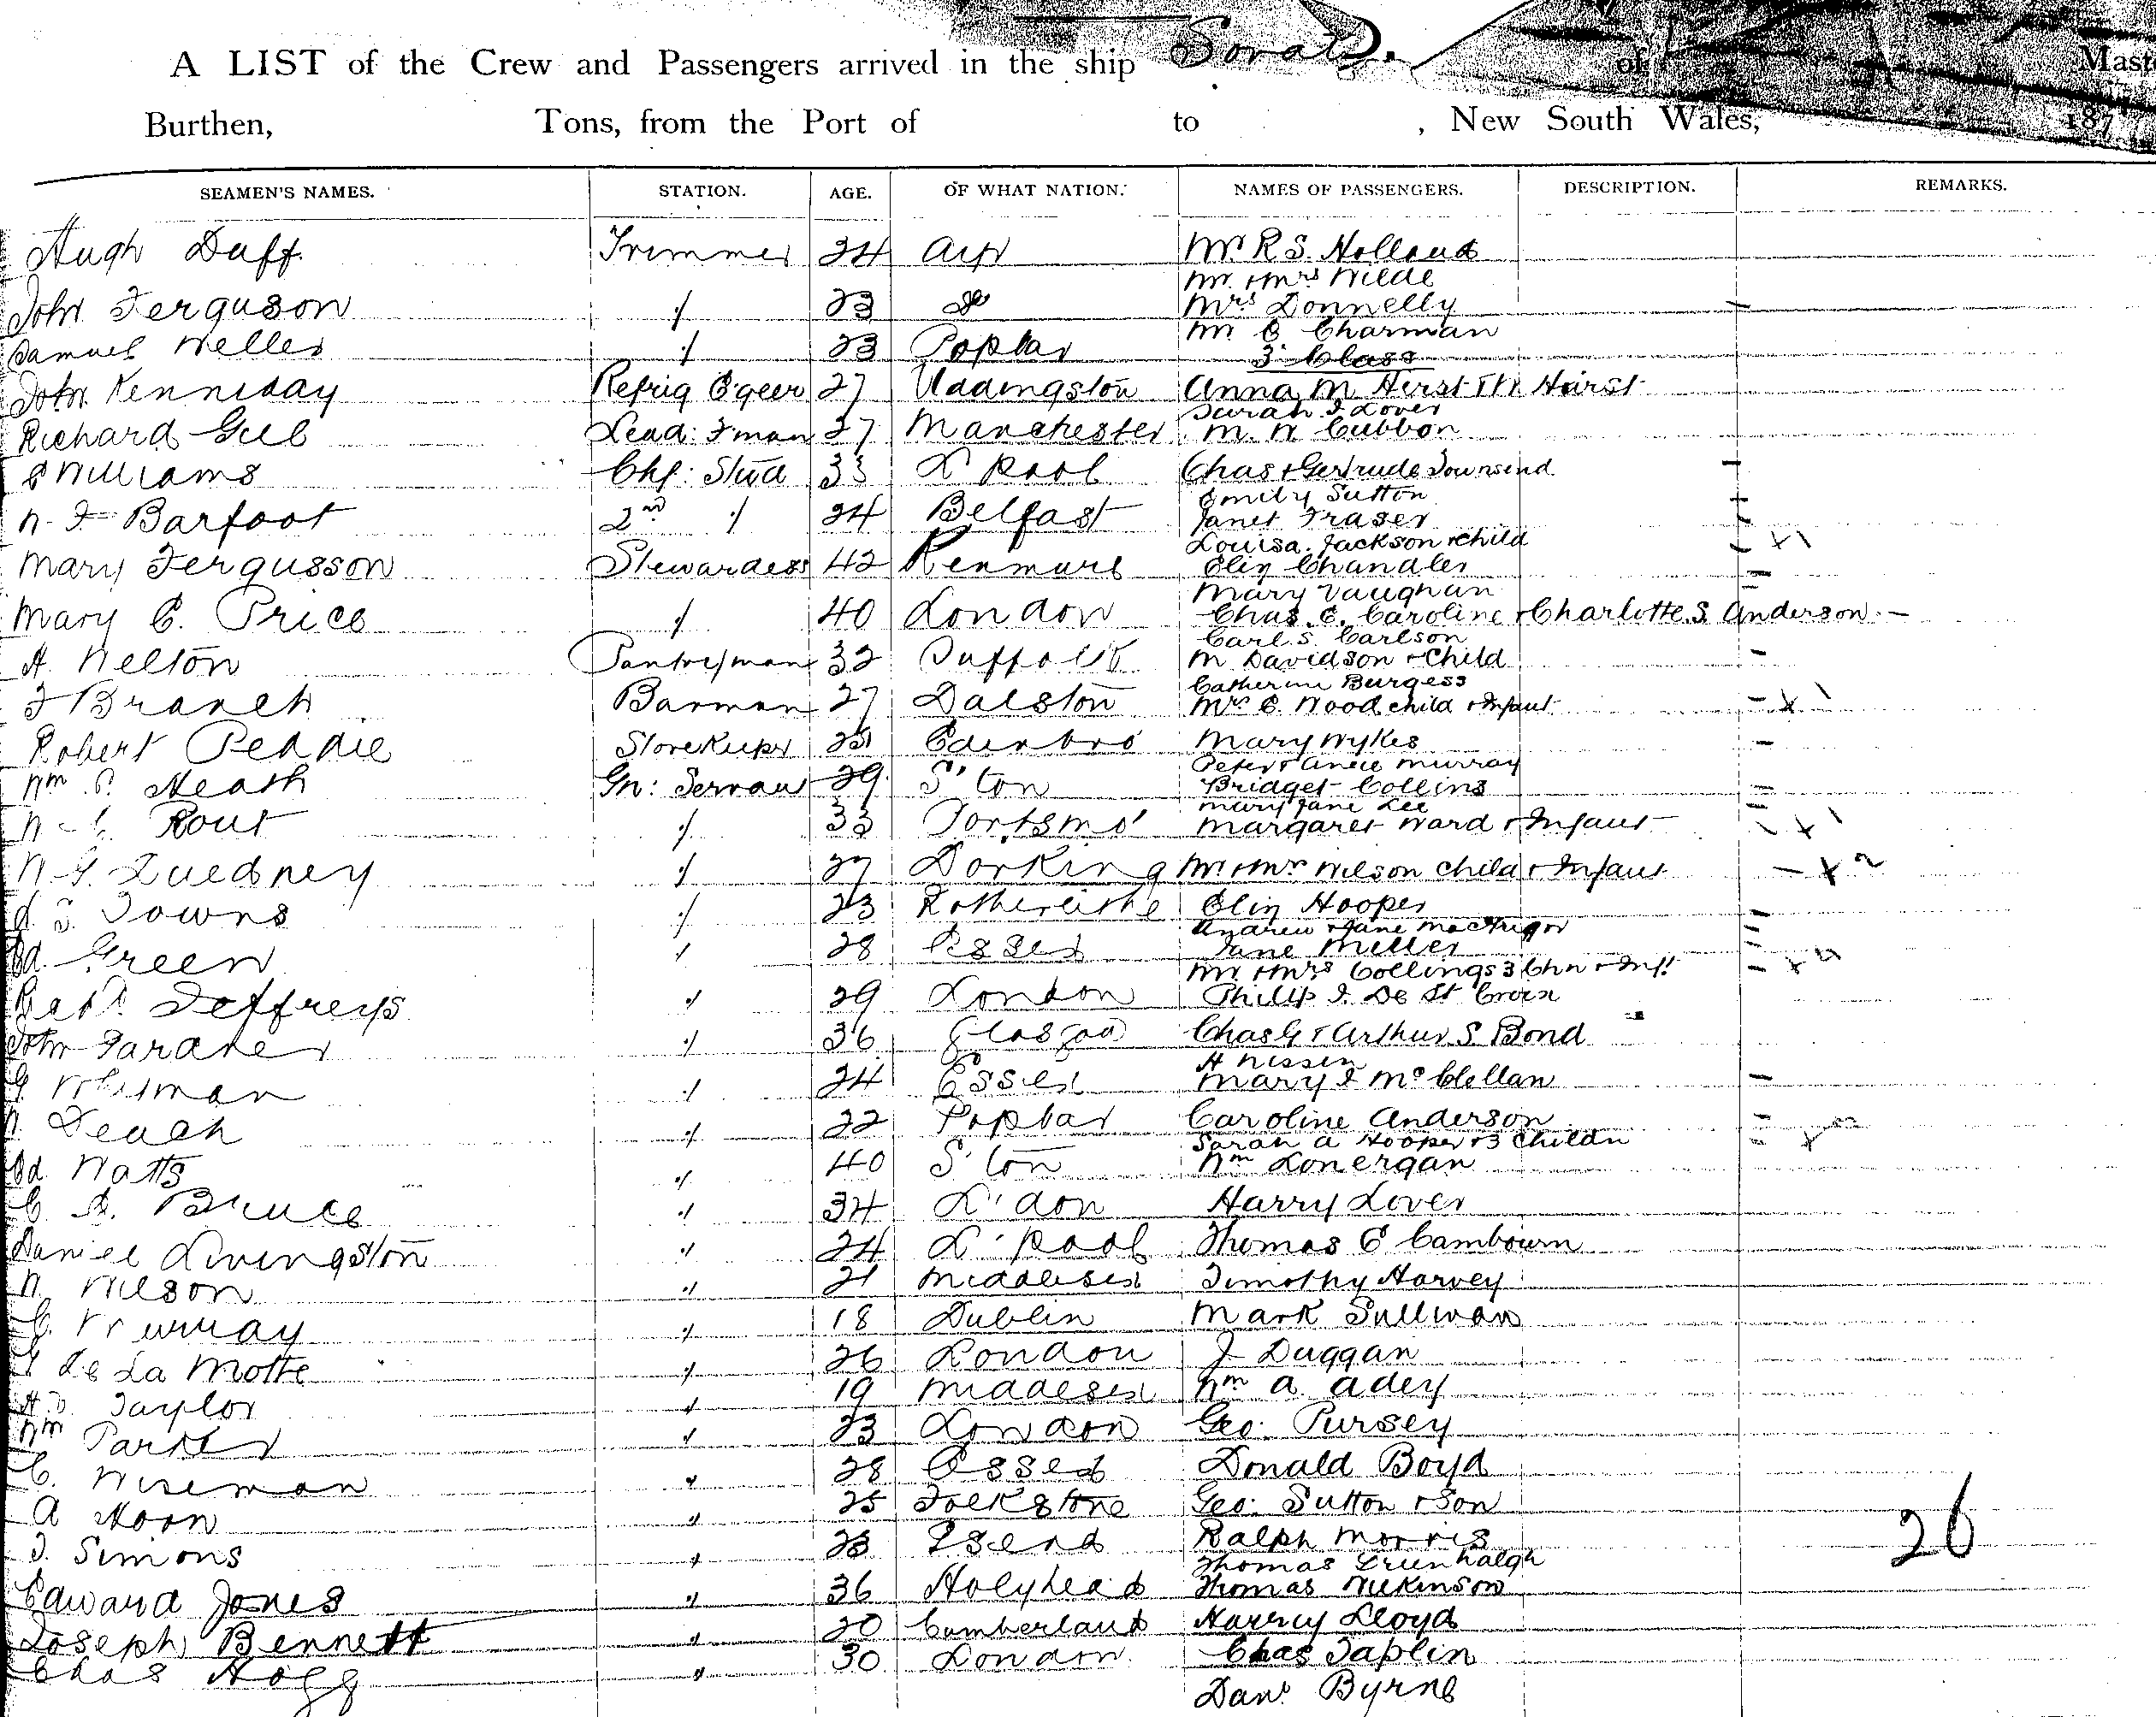 A LIST of the Crew and Passengers arrived in the ship Sorata. of Mast
Burthen, Tons, from the Port of to , New South Wales, 187
SEAMEN'S NAMES. STATION. AGE. OF WHAT NATION. NAMES OF PASSENGERS. DESCRIPTION. REMARKS.
Hugh Duff. Trimmer 24 Ayr Mr R S. Holland
Mr. & Mrs Wilde
John Ferguson :/ 23 Do Mrs Donnelly
Mr. C Charman
Samuel Weller :/ 23 Poplar 3 Class
John Kenniday Refrig E'geer 27 Uddingston Anna M Hirst T W Hurst
Sarah J Lover
Richard Gill Lead: F'man 27 Manchester M. W Cubbon
Williams Chf: Stwd 33 L'Pool Chas & Gertrude Townsend
Emily Sutton
W. F Barfoot 2nd :/ 24 Belfast Janet Fraser
Louisa Jackson & child + 1
Mary Fergusson Stewardess 42 Kenmure Eliz Chandler
Mary Vaughan
Mary C. Price :/ 40 London Chas. E. Caroline & Charlotte. S. Anderson
Carl. S. Carlson
A. Welton Pantryman 32 Suffolk M Davidson & Child
Catherine Burgess
F Branch Barman 27 Dalston Mrs C. Wood child & Infant + 1
Robert Peddie Storekeepr 25 Edinbro Mary Wykes
Peter & Annie Murray
Wm P. Heath Gn: Servant 29 S'ton Bridget Collins
Mary Jane Lee
Rout :/ 33 Portsmo' Margaret Ward & Infant + 1
W G. Luedney :/ 27 Dorking Mr & Mrs Wilson child & Infant + 2
Towns :/ 23 Rotherhithe Eliz Hooper
Andrew & Jane MacGregor
Ed. Green :/ 28 Essex Jane Miller
Mr. & Mrs Collings 3 Chn & Inft
Jeffreys :/ 29 London Philip J. De St Croix
John Gardner :/ 36 Glasgow Chas G & Arthur S. Bond
H Nissen
:/ 24 Essex Mary J McClellan
Leach :/ 22 Poplar Caroline Anderson
Sarah A Hooper & 3 Childn
Ed Watts :/ 40 S'ton Wm Lonergan
C. A. Bruce :/ 34 L'don Harry Lover
Daniel Livingston :/ 24 L'Pool Thomas E Cambourn
W. Wilson :/ 21 Middlesex Timothy Harvey
C. Murray :/ 18 Dublin Mark Sullivan
De La Motte :/ 26 London J Duggan
Taylor :/ 19 Middlesex Wm A. Adey
Wm Parker :/ 23 London Geo: Pursey
C. Wiseman :/ 28 Essex Donald Boyd
A Hoon :/ 25 Folkstone Geo: Sutton & Son
J. Simons :/ 23 Ralph Morris
Thomas Greenhalgh
Edward Jones :/ 36 Holyhead Thomas Wilkinson
26
Joseph Bennett :/ 20 Cumberland Harry Lloyd
Chas Hogg :/ 30 London Chas Taplin
Danl Byrne